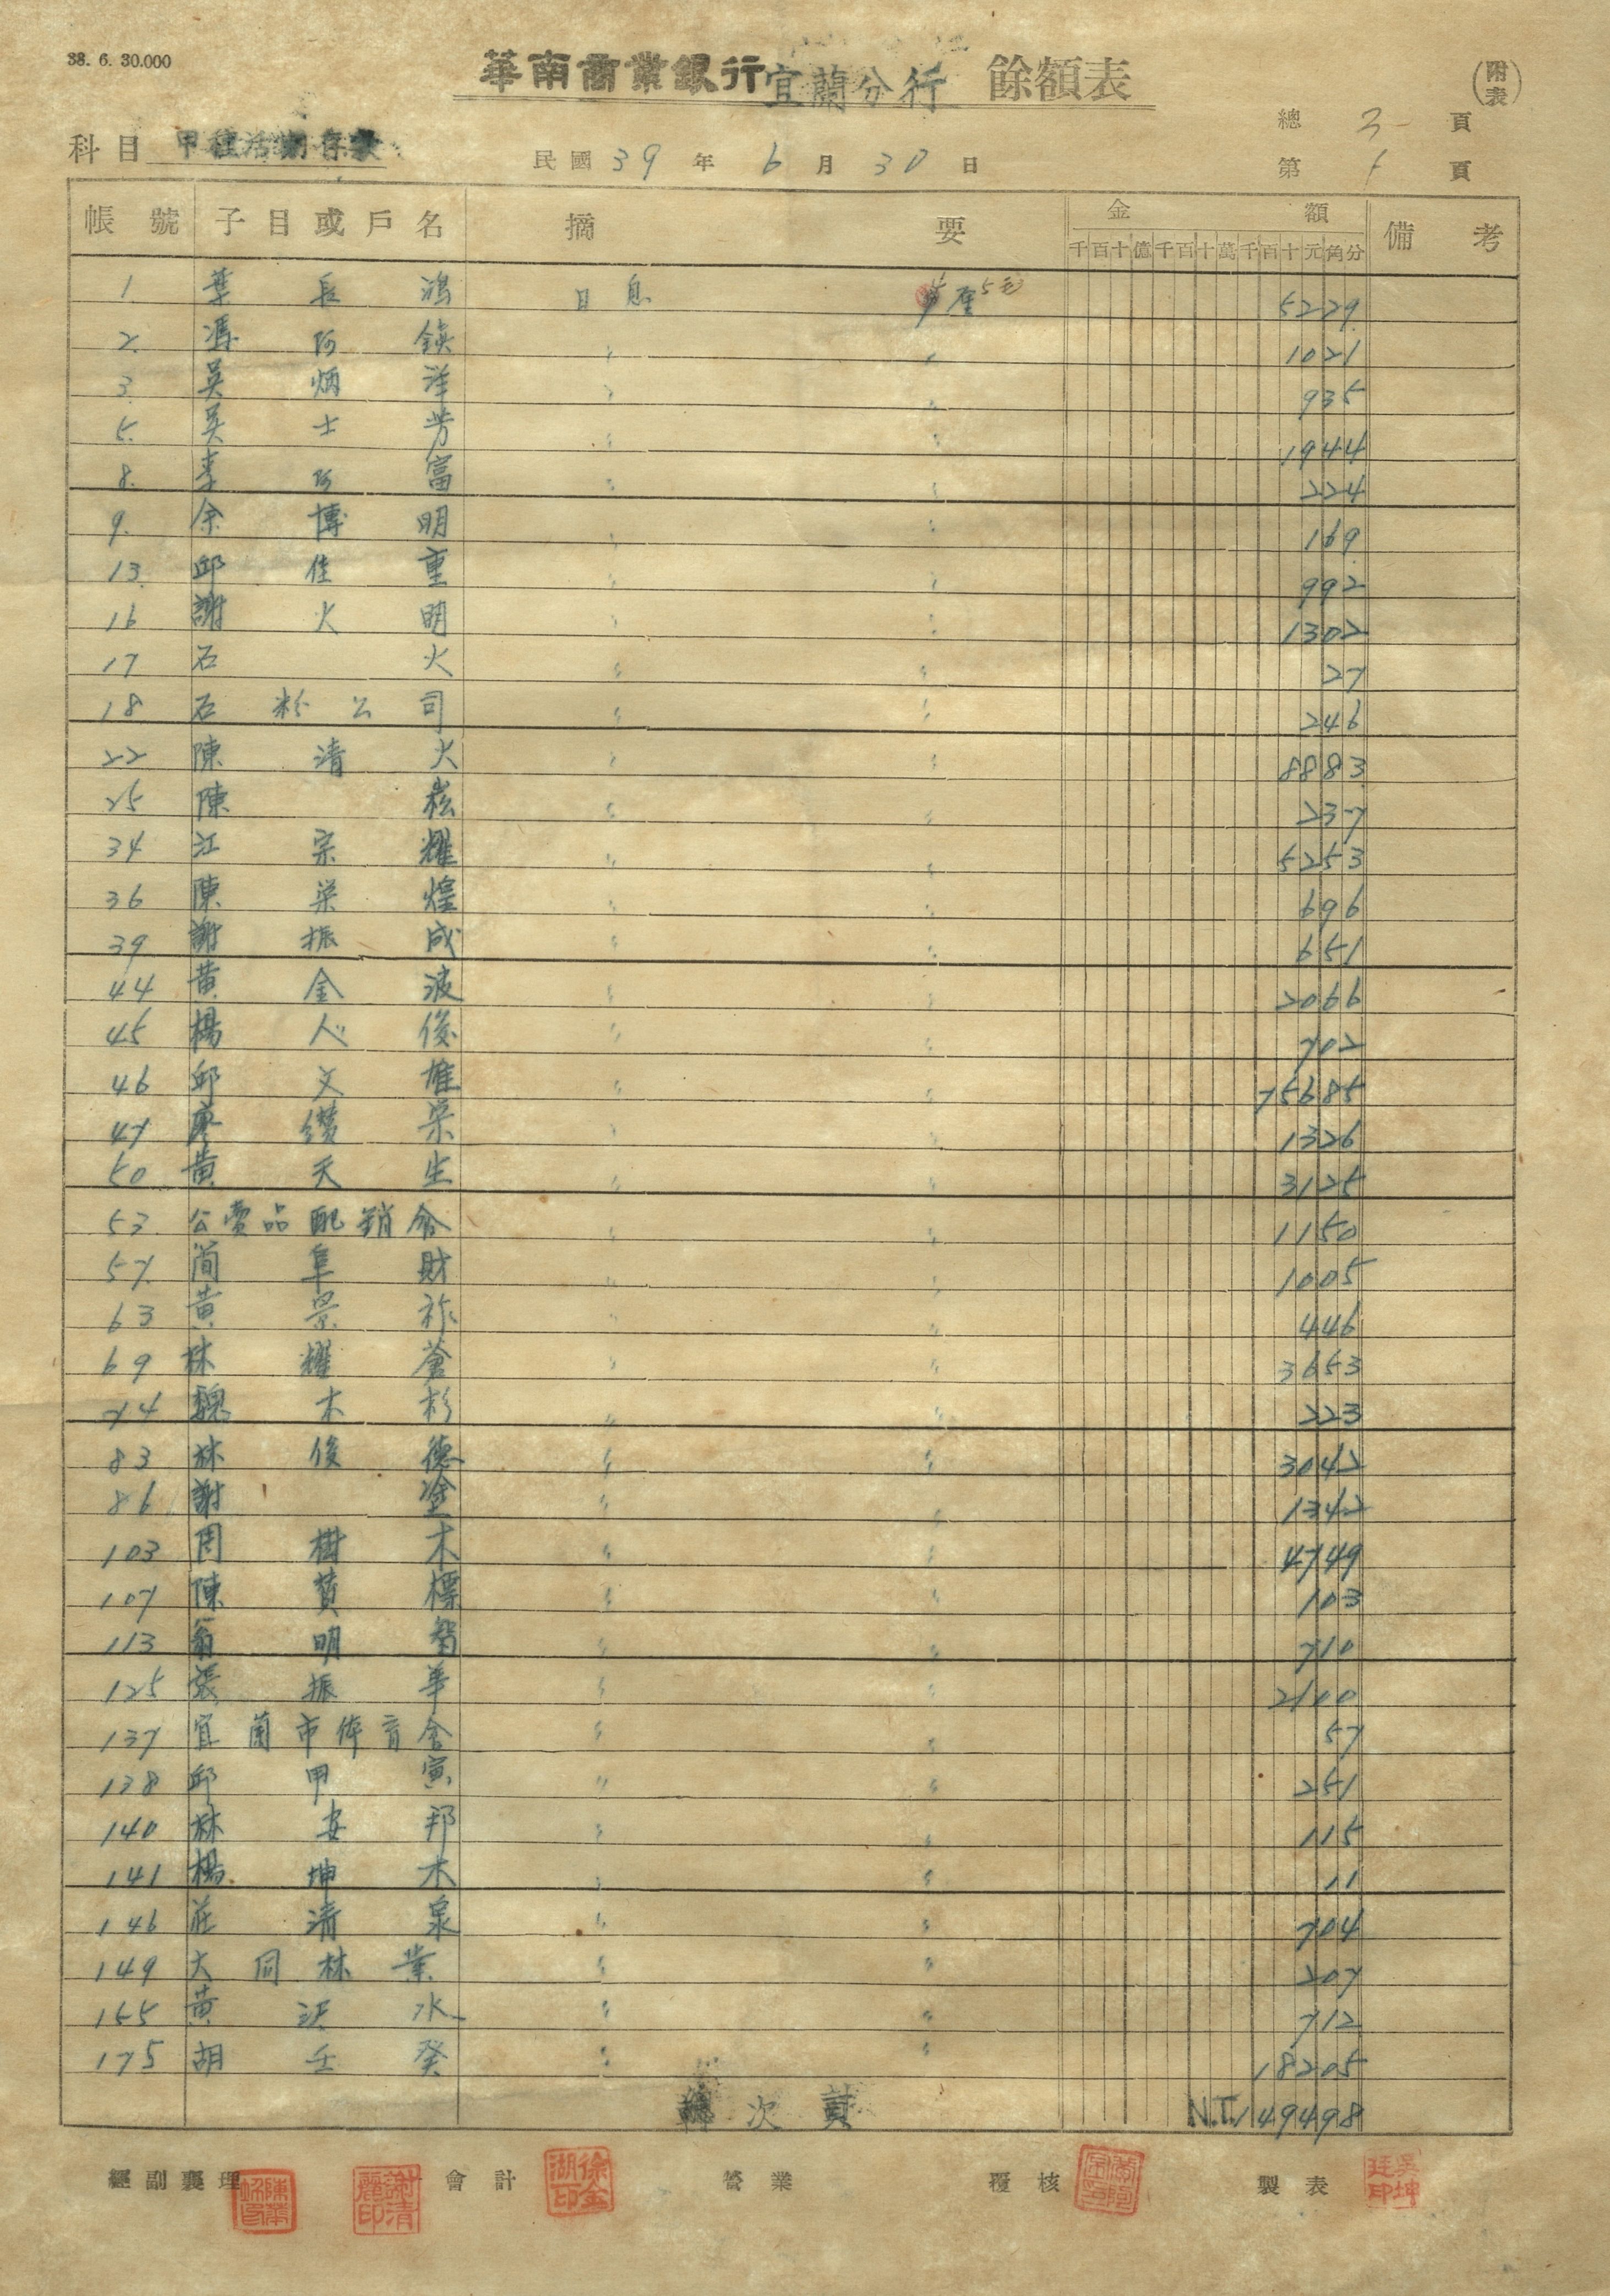 38. 6. 30.000
華南商業銀行宜蘭分行 餘額表 (附表)
總 3 頁
科目 甲種活期存款 民國 39 年 6 月 30 日 第 1 頁
帳號 子目或戶名 摘要 金額 備考
千百十億千百十萬千百十元角分
1 葉長鴻 日息 厘 5229
2. 馮阿鍈 〃 〃 1021
3. 吳炳洋 〃 〃 935
5. 吳士芳 〃 〃 1944
8. 李阿富 〃 〃 224
9. 余博明 〃 〃 169
13. 邱佳重 〃 〃 992
16 謝火明 〃 〃 1302
17 石火 〃 〃 27
18 石粉公司 〃 〃 246
22 陳清火 〃 〃 8883
25 陳崧 〃 〃 237
34 江宗耀 〃 〃 5253
36 陳栄煌 〃 〃 696
39 謝振成 〃 〃 651
44 黃金波 〃 〃 2066
45 楊人俊 〃 〃 702
46 邱文雄 〃 〃 75685
47 廖纘栄 〃 〃 1326
50 黃天生 〃 〃 3125
53. 公賣品配銷会 〃 〃 1150
57. 簡阜財 〃 〃 1005
63 黃景祚 〃 〃 446
69 林耀蒼 〃 〃 3653
74 魏木杉 〃 〃 223
83 林俊德 〃 〃 3042
86 謝塗 〃 〃 1342
103 周樹木 〃 〃 4749
107 陳賛標 〃 〃 103
113 翁明智 〃 〃 710
125 張振華 〃 〃 2100
137 宜蘭市体育会 〃 〃 57
138 邱甲寅 〃 〃 251
140 林安邦 〃 〃 115
141 楊坤木 〃 〃 11
146 莊清泉 〃 〃 704
149 大同林業 〃 〃 207
155 黃水 〃 〃 712
175 胡壬癸 〃 〃 18205
轉次頁 N.T.149498
經副襄理 謝清麗印 會計 徐金湖印 營業 覆核 製表 吳坤廷印